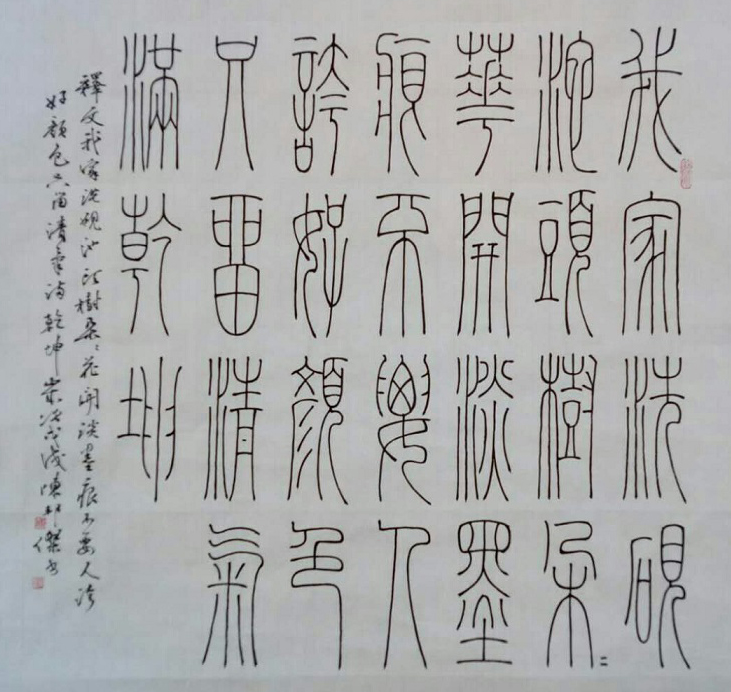 我家洗硯
池頭樹朵〻
華開淡墨
痕不要人
誇好顏色
只留清氣
滿乾坤
釋文我家洗硯池頭樹朵〻花開淡墨痕不要人誇
好顏色只留清氣滿乾坤歲次戊戌陳邦傑書